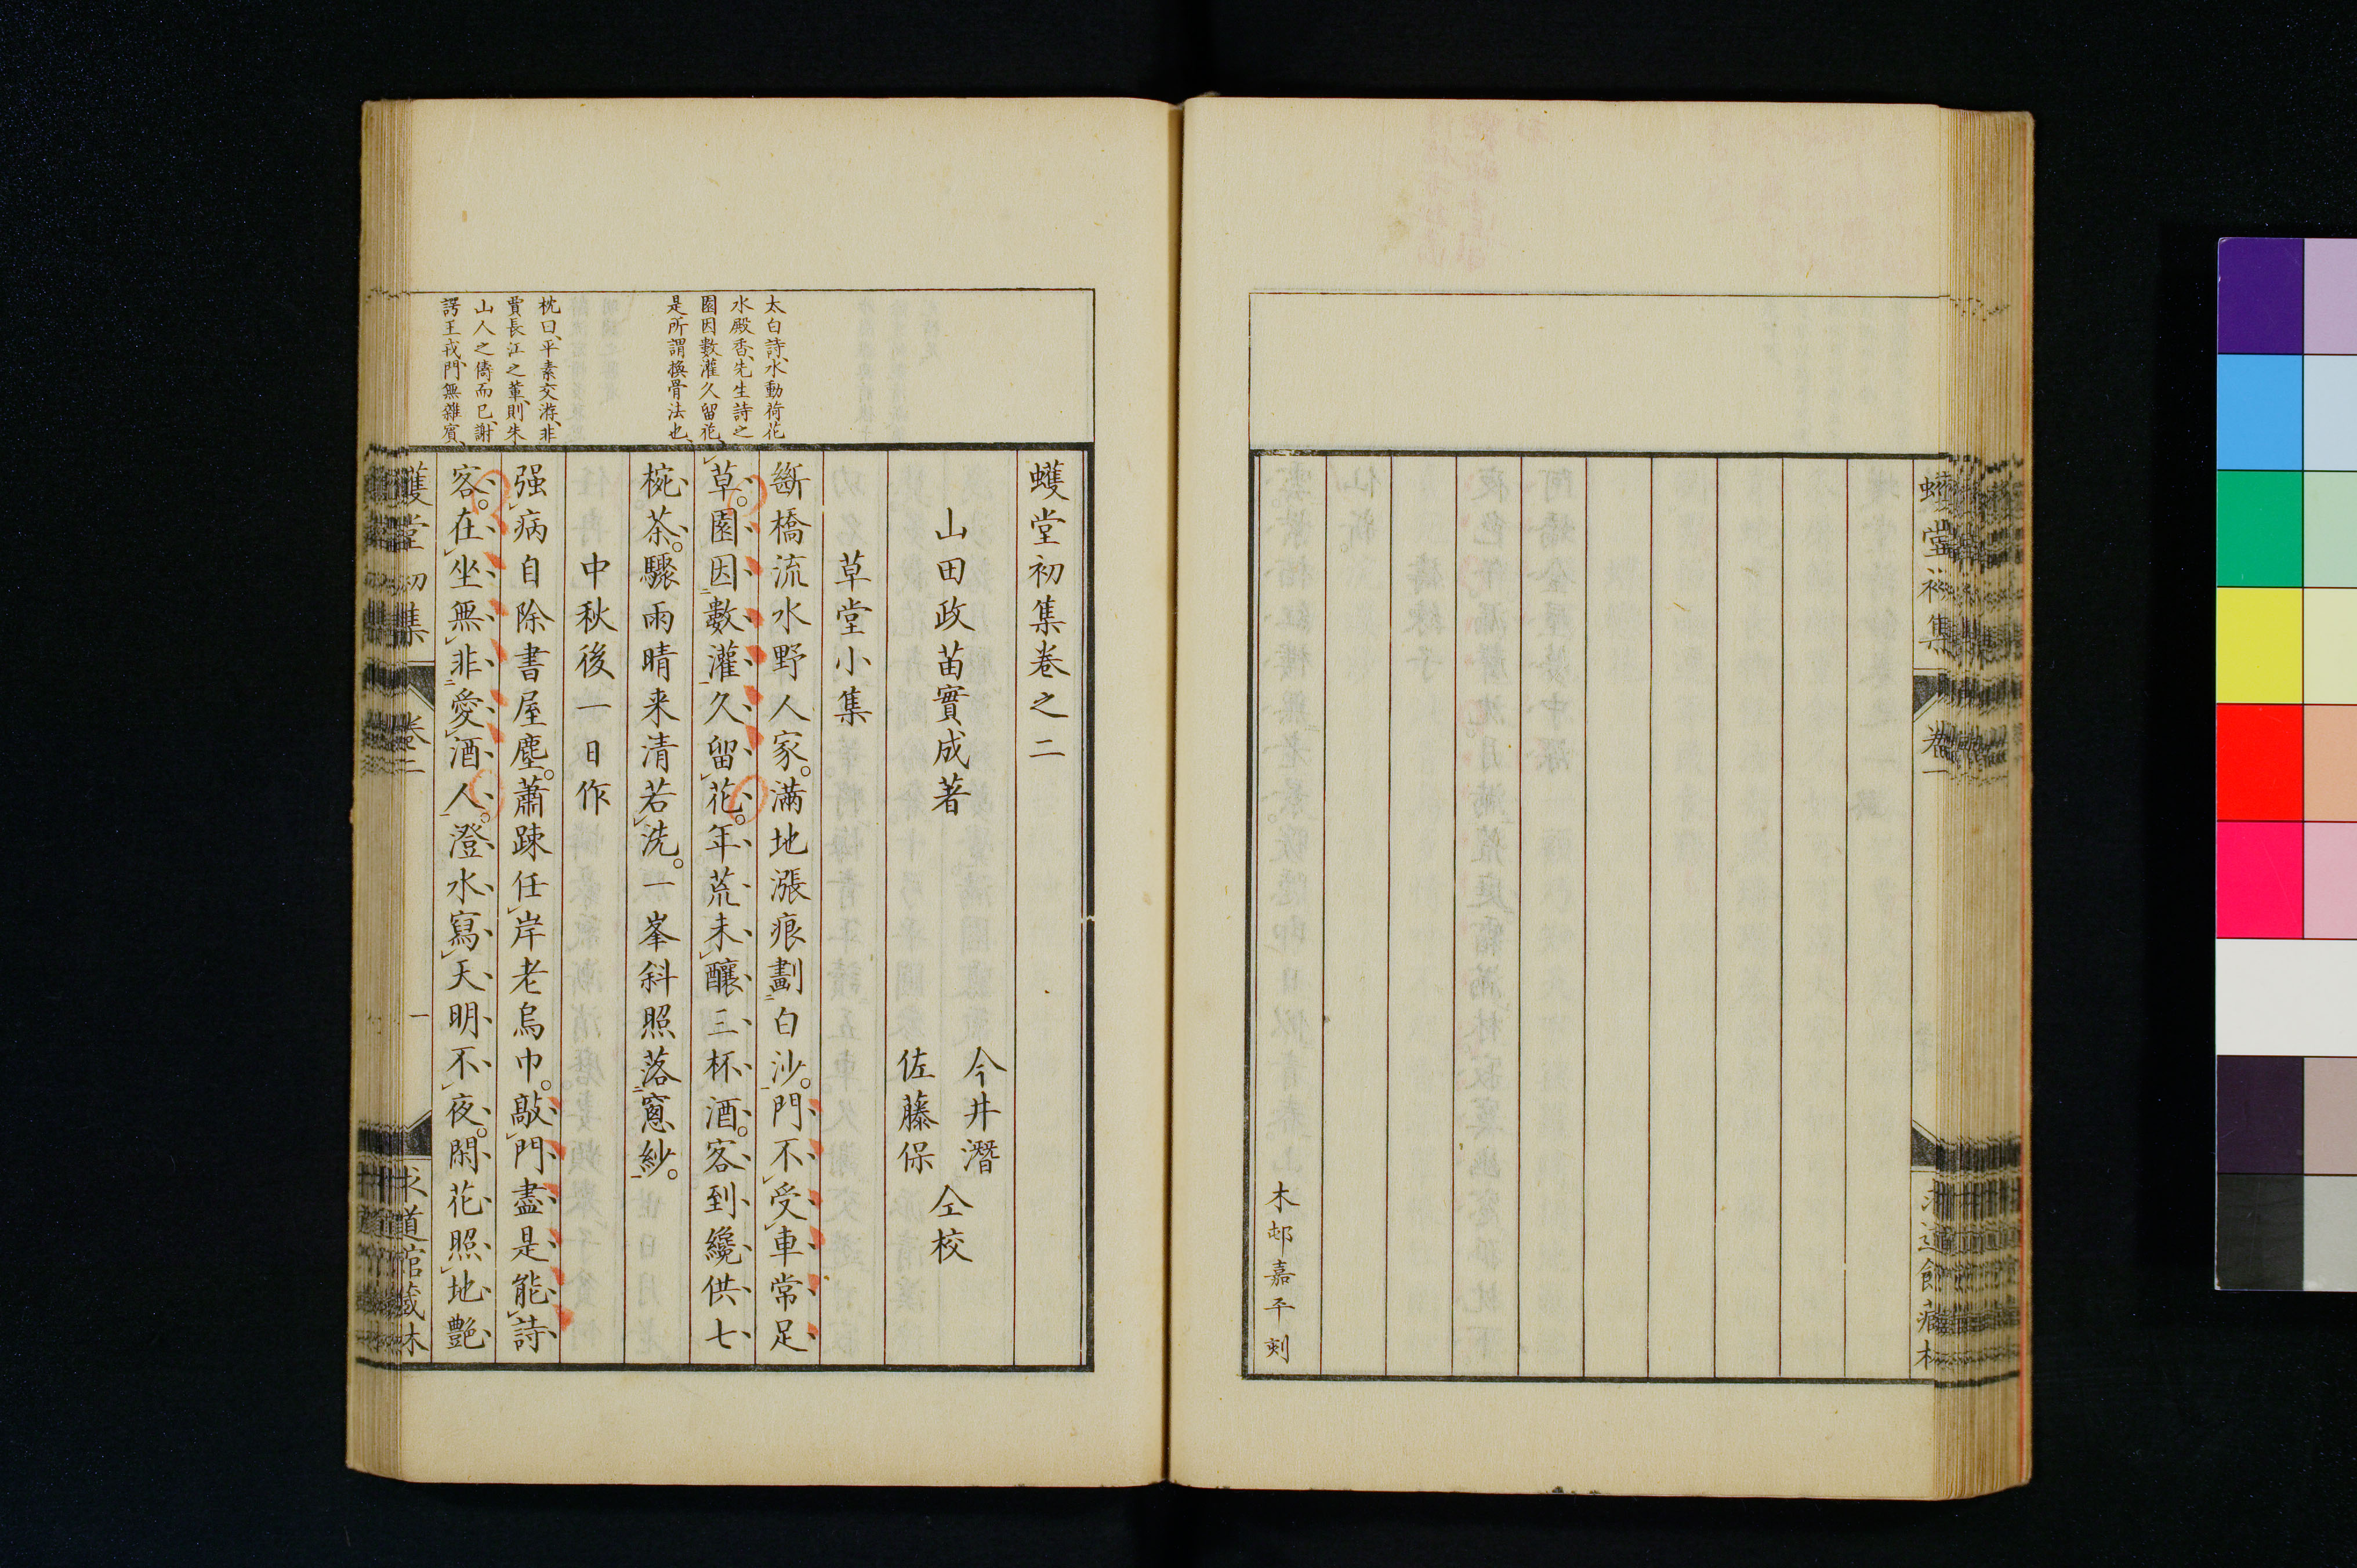 蠖堂初集
卷一
求道館藏木
木邨嘉平刻
太白詩、水動荷花
水殿香、先生詩之
園因數灌久留花、
是所謂換骨法也、
枕曰、平素交游、非
賈長江之輩、則朱
山人之儔而已、謝
諤王戎、門無雜賓、
蠖堂初集卷之二
山田政苗實成著
今井潛
佐藤保
仝校
草堂小集
斷橋流水野人家。滿地漲痕劃白沙。門不受車常足
草。園因數灌久留花。年荒未釀三杯酒。客到纔供七
椀茶。驟雨晴来清若洗。一峯斜照落窻紗。
中秋後一日作
强病自除書屋塵。蕭踈任岸老烏巾。敲門盡是能詩
客。在坐無非愛酒人。澄水寫天明不夜。閑花照地艶
蠖堂初集
卷二
一
求道館藏木